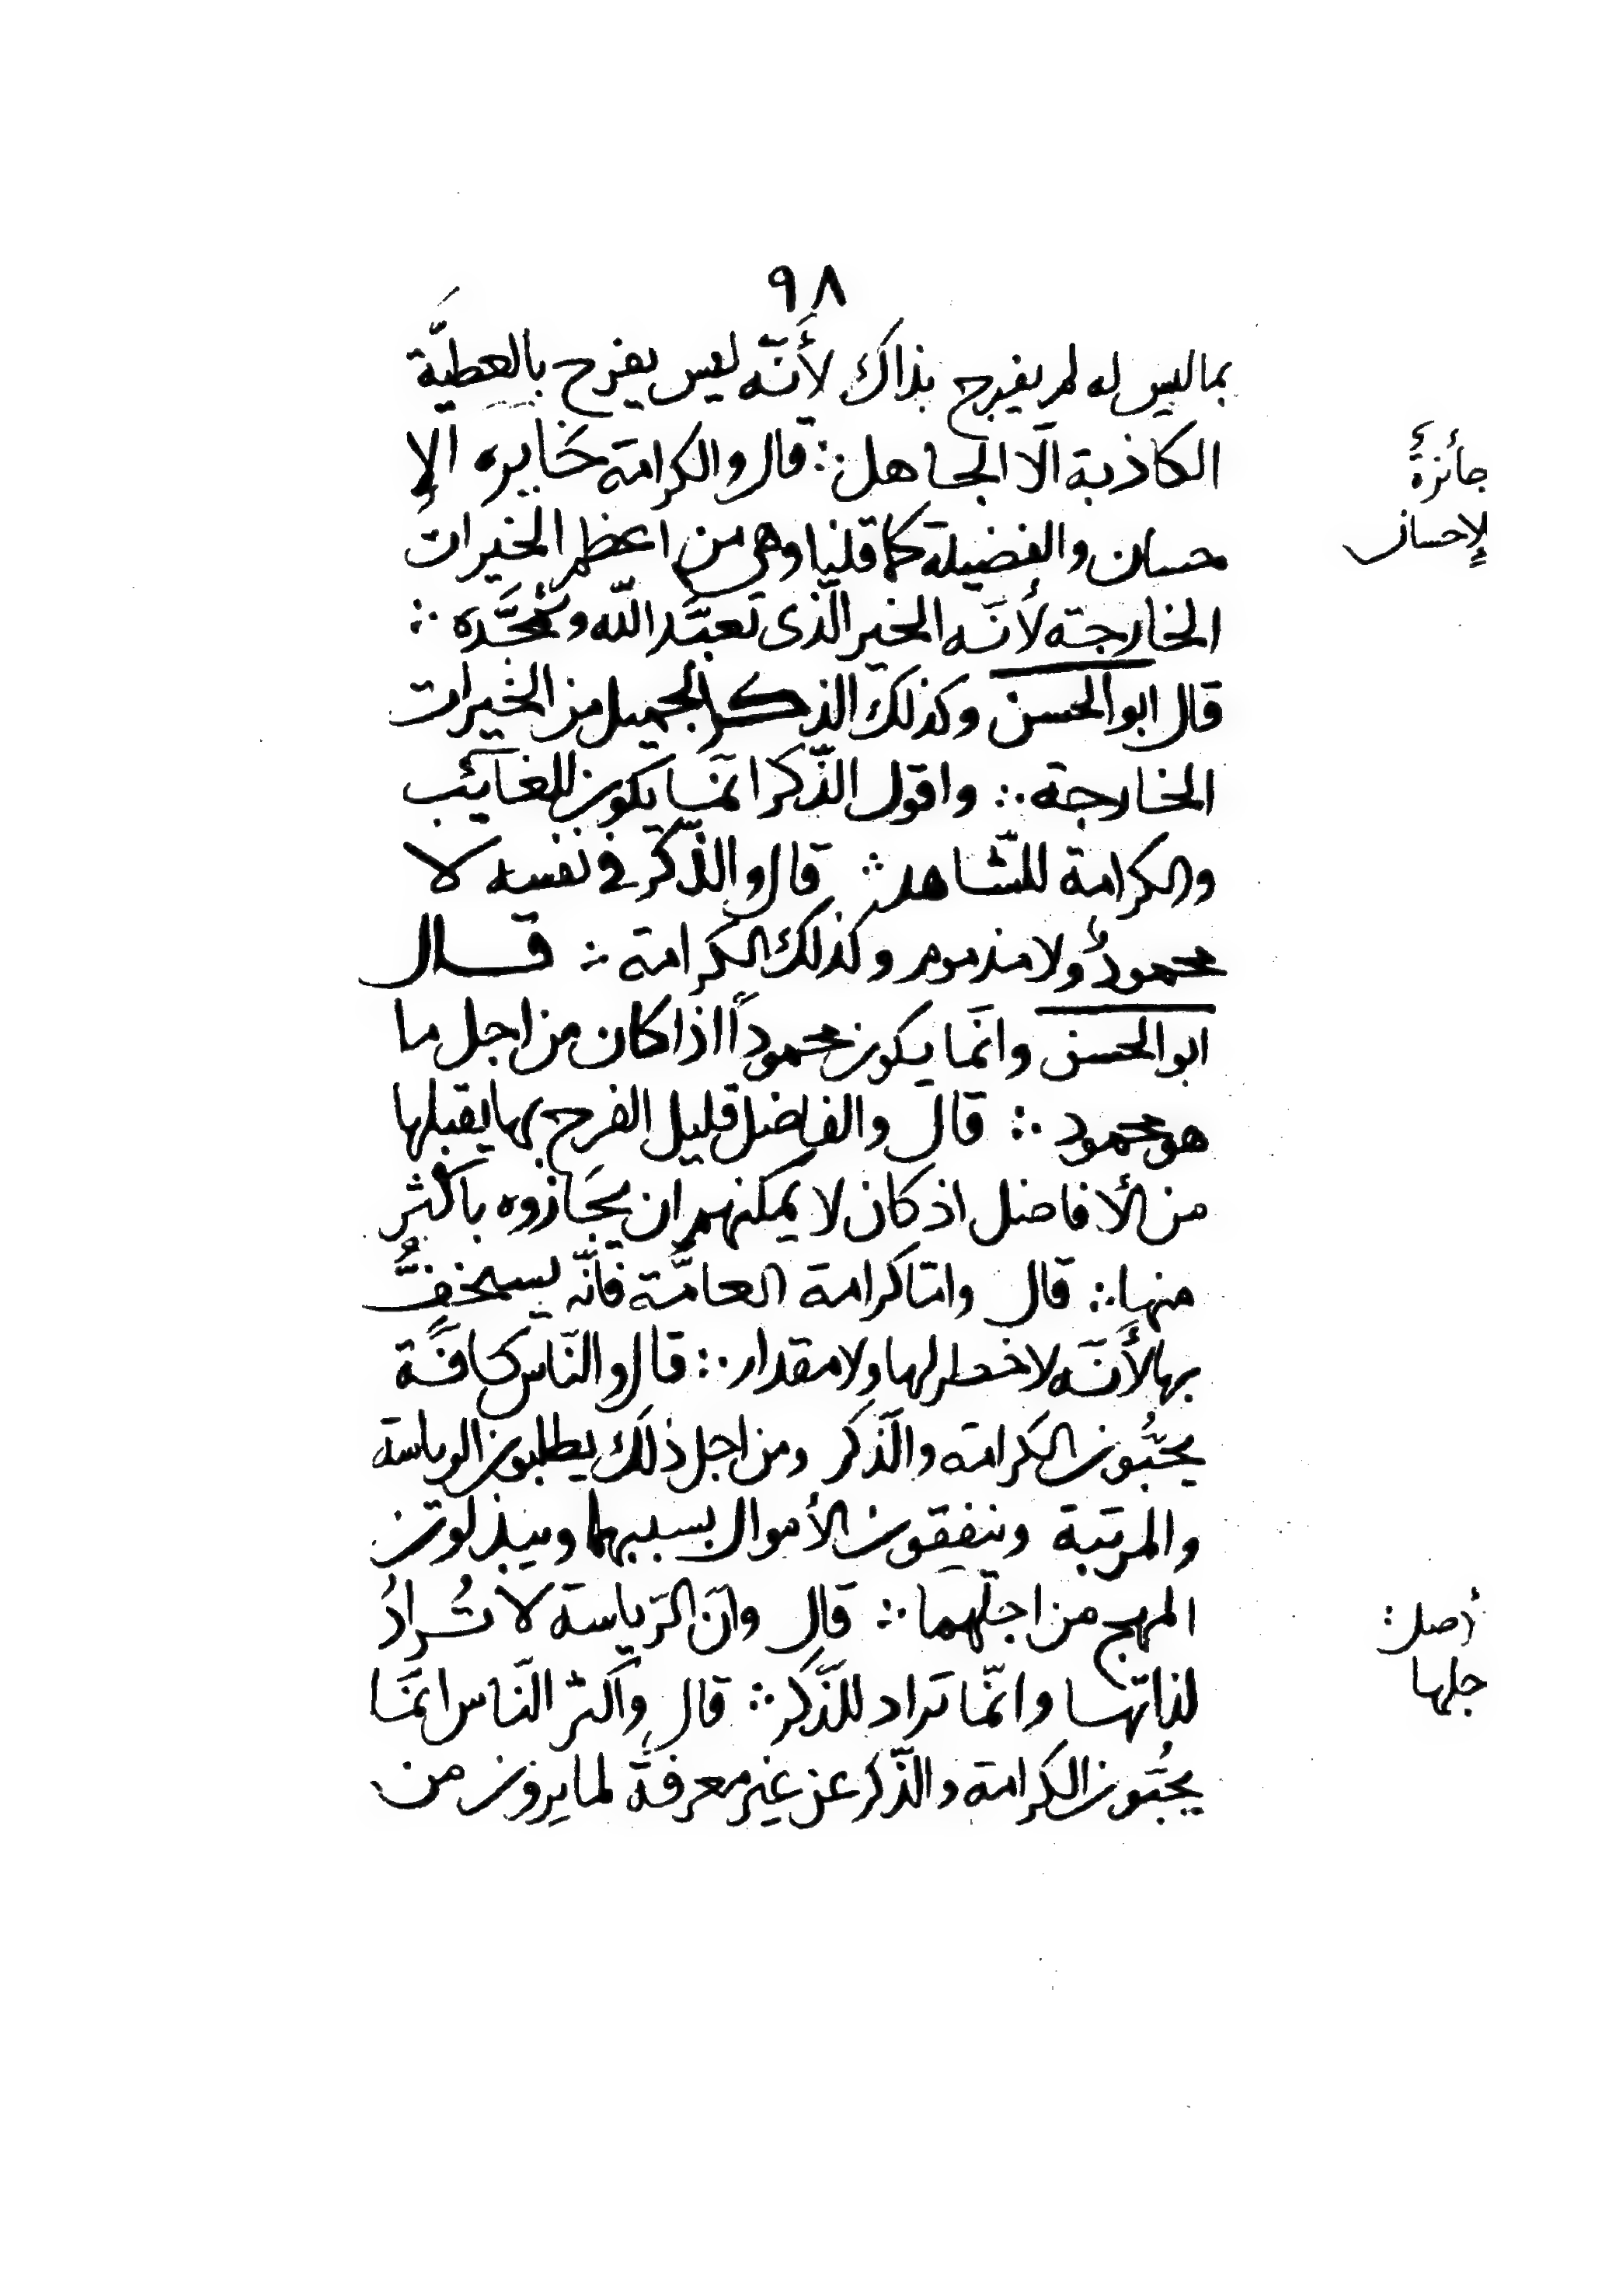 ٩٨
بما ليس له لم يفرح بذاك لأَنّه ليس يفرح بالعطيّة
الكاذبة الّا الجاهل ∴ قال والكرامة جَايره الإ
جائزةٌ
حسان والفضيلة كما قلنا وهى من اعظم الخيرات
لإحسان
الخارجة لأنّه الخير الّذى نعبّد اللّه ونمجّده ∴
قال ابو الحسن وكذلك الذكر الجميل من الخيرات
الخارجة ∴ واقول الذّكر انّما يكون للغائب
والكرامة للشّاهد ∴ قال والذّكر فى نفسه لا
محمودٌ ولا مذموم وكذلك الكرامة ∴ قال
ابو الحسن وانّما يكون محموداً اذا كان من اجل ما
هو محمود ∴ قال والفاضل قليل الفرح بها يقبلها
من الأفاضل اذ كان لا يمكنهم ان يجَازوه باكثر
منها ∴ قال وامّا كرامة العامّة فانّه يستخفُّ
بها لأَنّه لا خطر لها ولا مقدار ∴ قال والنّاس كافّة
يحبُّون الكرامة والّذكر ومن اجل ذلك يطلبون الرياسة
والمرتبة وينفقون الأموال بسببهما ويبذلون
المهج من اجلهما ∴ قال وانّ الرّياسة لا تُرادُ
أصل:
جلها
لذاتها وانّما تراد للذّكر ∴ قال واكثر النّاس انّما
يحبُّون الكرامة والذّكر عن غير معرفةٍ لما يرون من